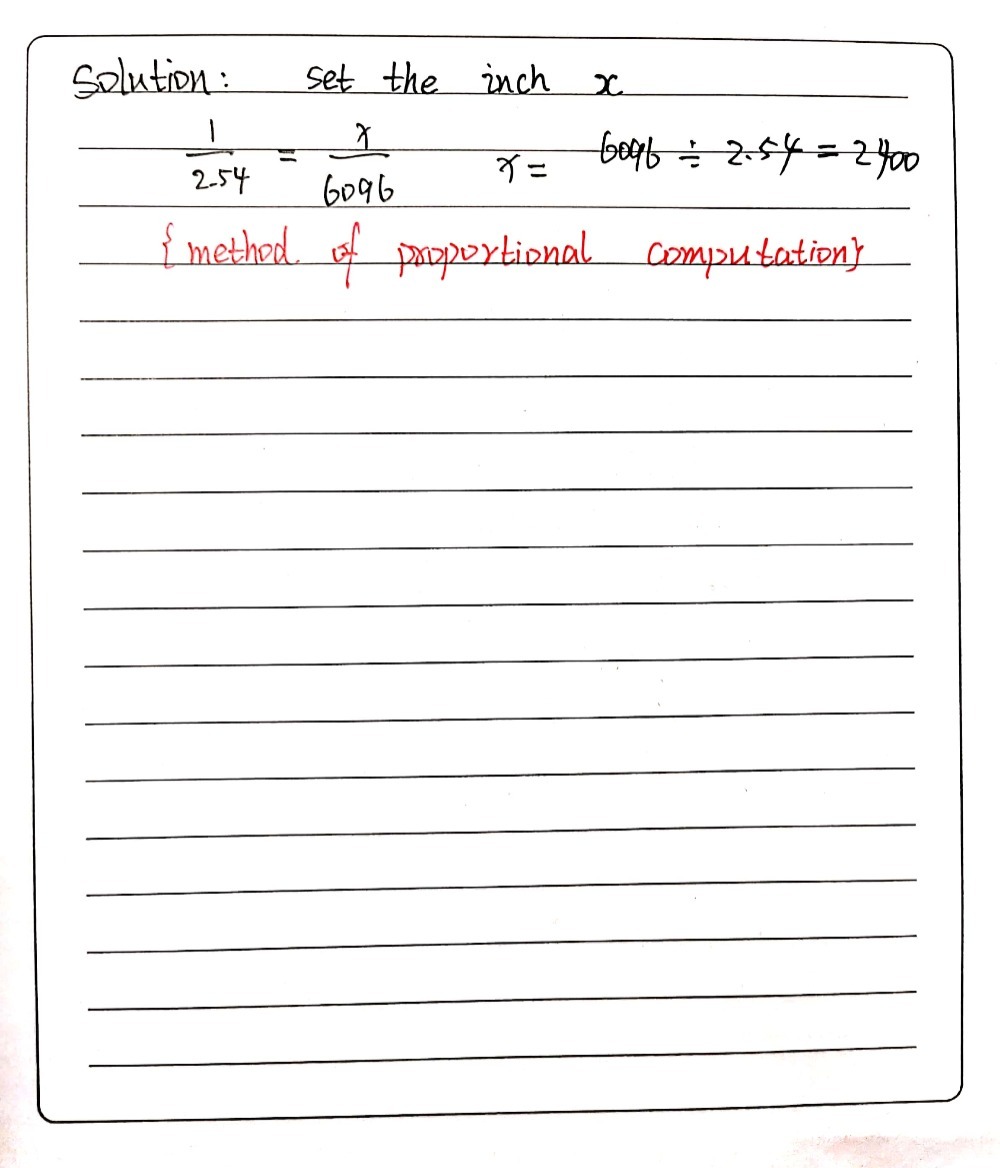 Solution: set the inch x
1/2.54 = x/6096 x = 6096 ÷ 2.54 = 2400
{method of proportional computation}